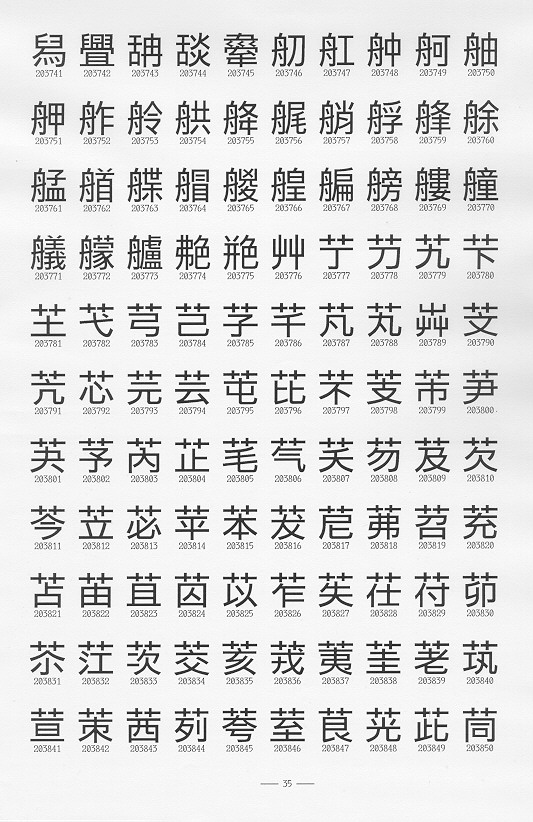 舄 舋 舑 舕 舝 舡 舯 舸 舳
203741 203742 203743 203744 203745 203746 203747 203748 203749 203750
舺 舴 舲 舼 舽 艉 艄 艀 艂 艅
203751 203752 203753 203754 203755 203756 203757 203758 203759 203760
艋 艏 艓 艒 艐 艎 艑 艕 艛 艟
203761 203762 203763 203764 203765 203766 203767 203768 203769 203770
艤 艨 艫 艴 艵 艸 艼 芀 艽 芐
203771 203772 203773 203774 203775 203776 203777 203778 203779 203780
芏 芅 芎 芑 芓 芊 芃 芄 芔
203781 203782 203783 203784 203785 203786 203787 203788 203789 203790
苀 芯 芫 芸 芚 芘 芣 芰 芾 芛
203791 203792 203793 203794 203795 203796 203797 203798 203799 203800
芵 芧 芮 芷 芼 芺 芴 芨 芡
203801 203802 203803 203804 203805 203806 203807 203808 203809 203810
芩 苙 苾 苹 苯 苃 苨 茀 苕 茺
203811 203812 203813 203814 203815 203816 203817 203818 203819 203820
苫 苖 苴 苬 苡 苲 苵 茌 苻 茆
203821 203822 203823 203824 203825 203826 203827 203828 203829 203830
苶 茳 茨 茭 荄 茙 荑 茥 荖 茿
203831 203832 203833 203834 203835 203836 203837 203838 203839 203840
荁 茦 茜 茢 荂 荎 茛 茪 茈 茼
203841 203842 203843 203844 203845 203846 203847 203848 203849 203850
— 35 —